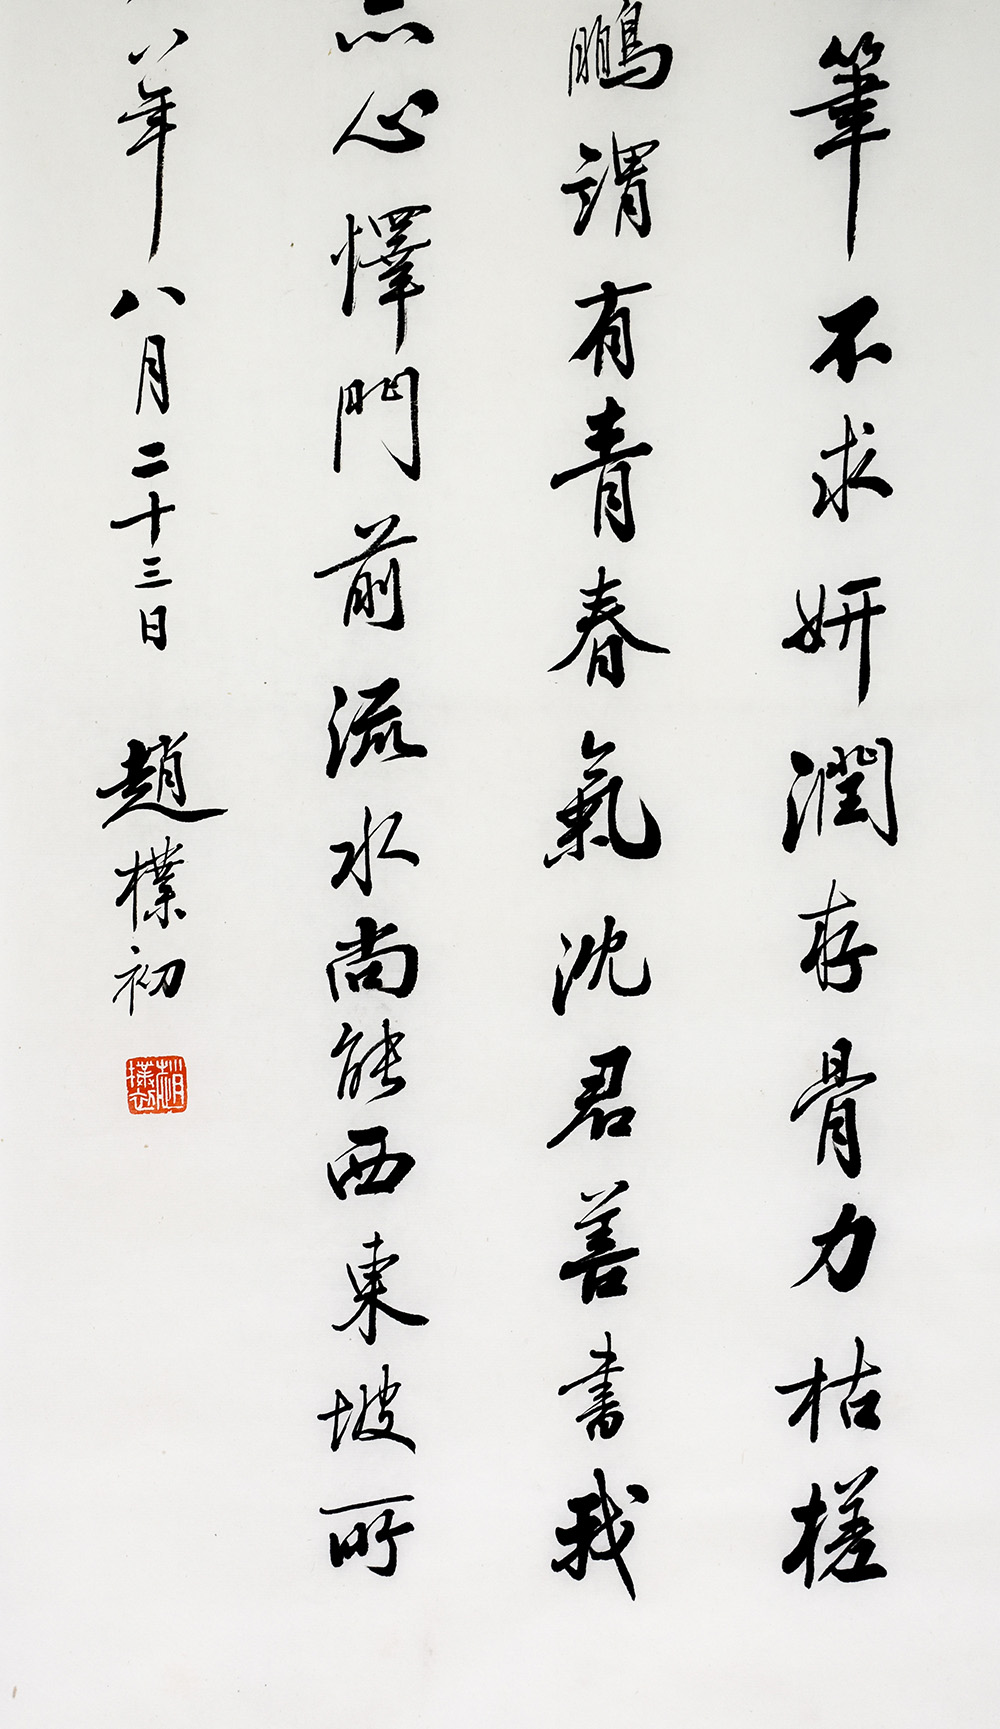 筆不求妍潤存骨力枯槎
鵬謂有青春氣沈君善書我
亦心懌門前流水尚能西東坡所
八年八月二十三日 趙樸初
趙樸初